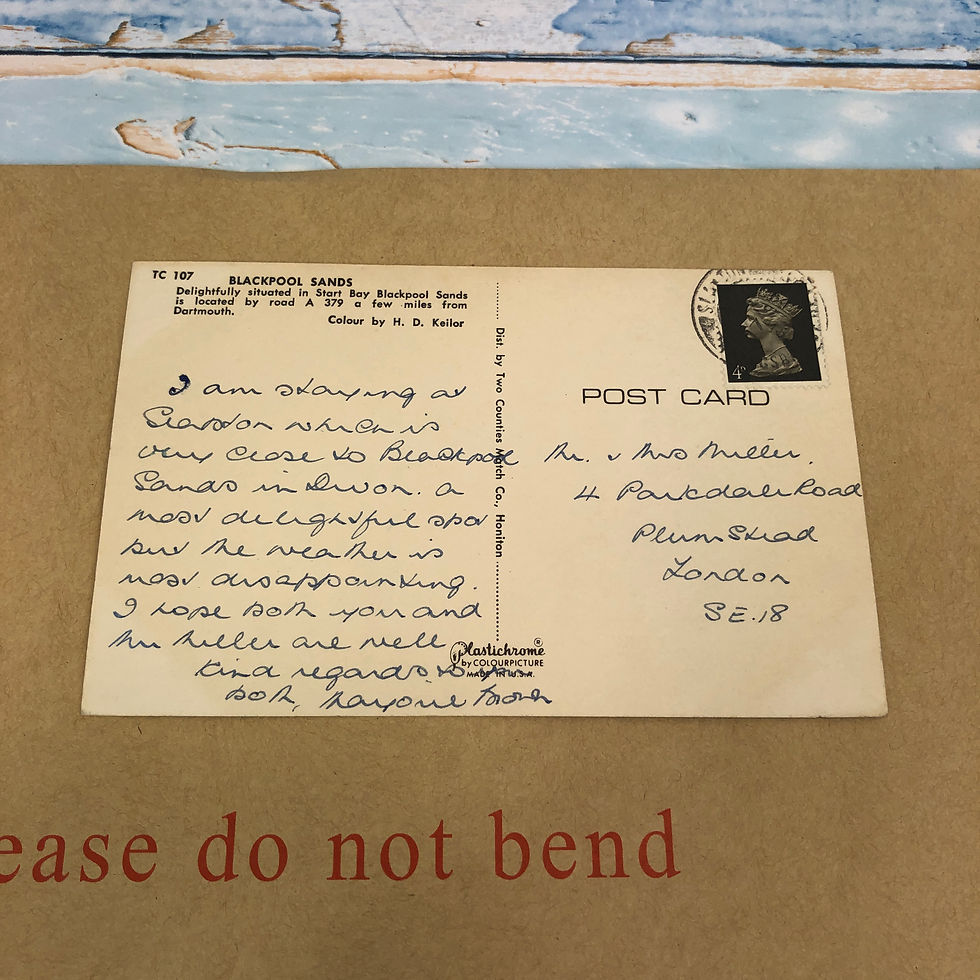 TC 107
BLACKPOOL SANDS
Delightfully situated in Start Bay Blackpool Sands
is located by road A 379 a few miles from
Dartmouth.
Colour by H. D. Keilor
I am staying at
which is
very close to Blackpool
Sands in Devon. a
most delightful spot
but the weather is
most disappointing.
I hope both you and
Mr Miller are well
Kind regards to you
both, Marjorie
Dist. by Two Counties Match Co., Honiton
Plastichrome®
by COLOURPICTURE
MADE IN U.S.A.
4D
POST CARD
Mr. & Mrs Miller.
4 Parkdale Road
Plumstead
London
SE.18
ease do not bend